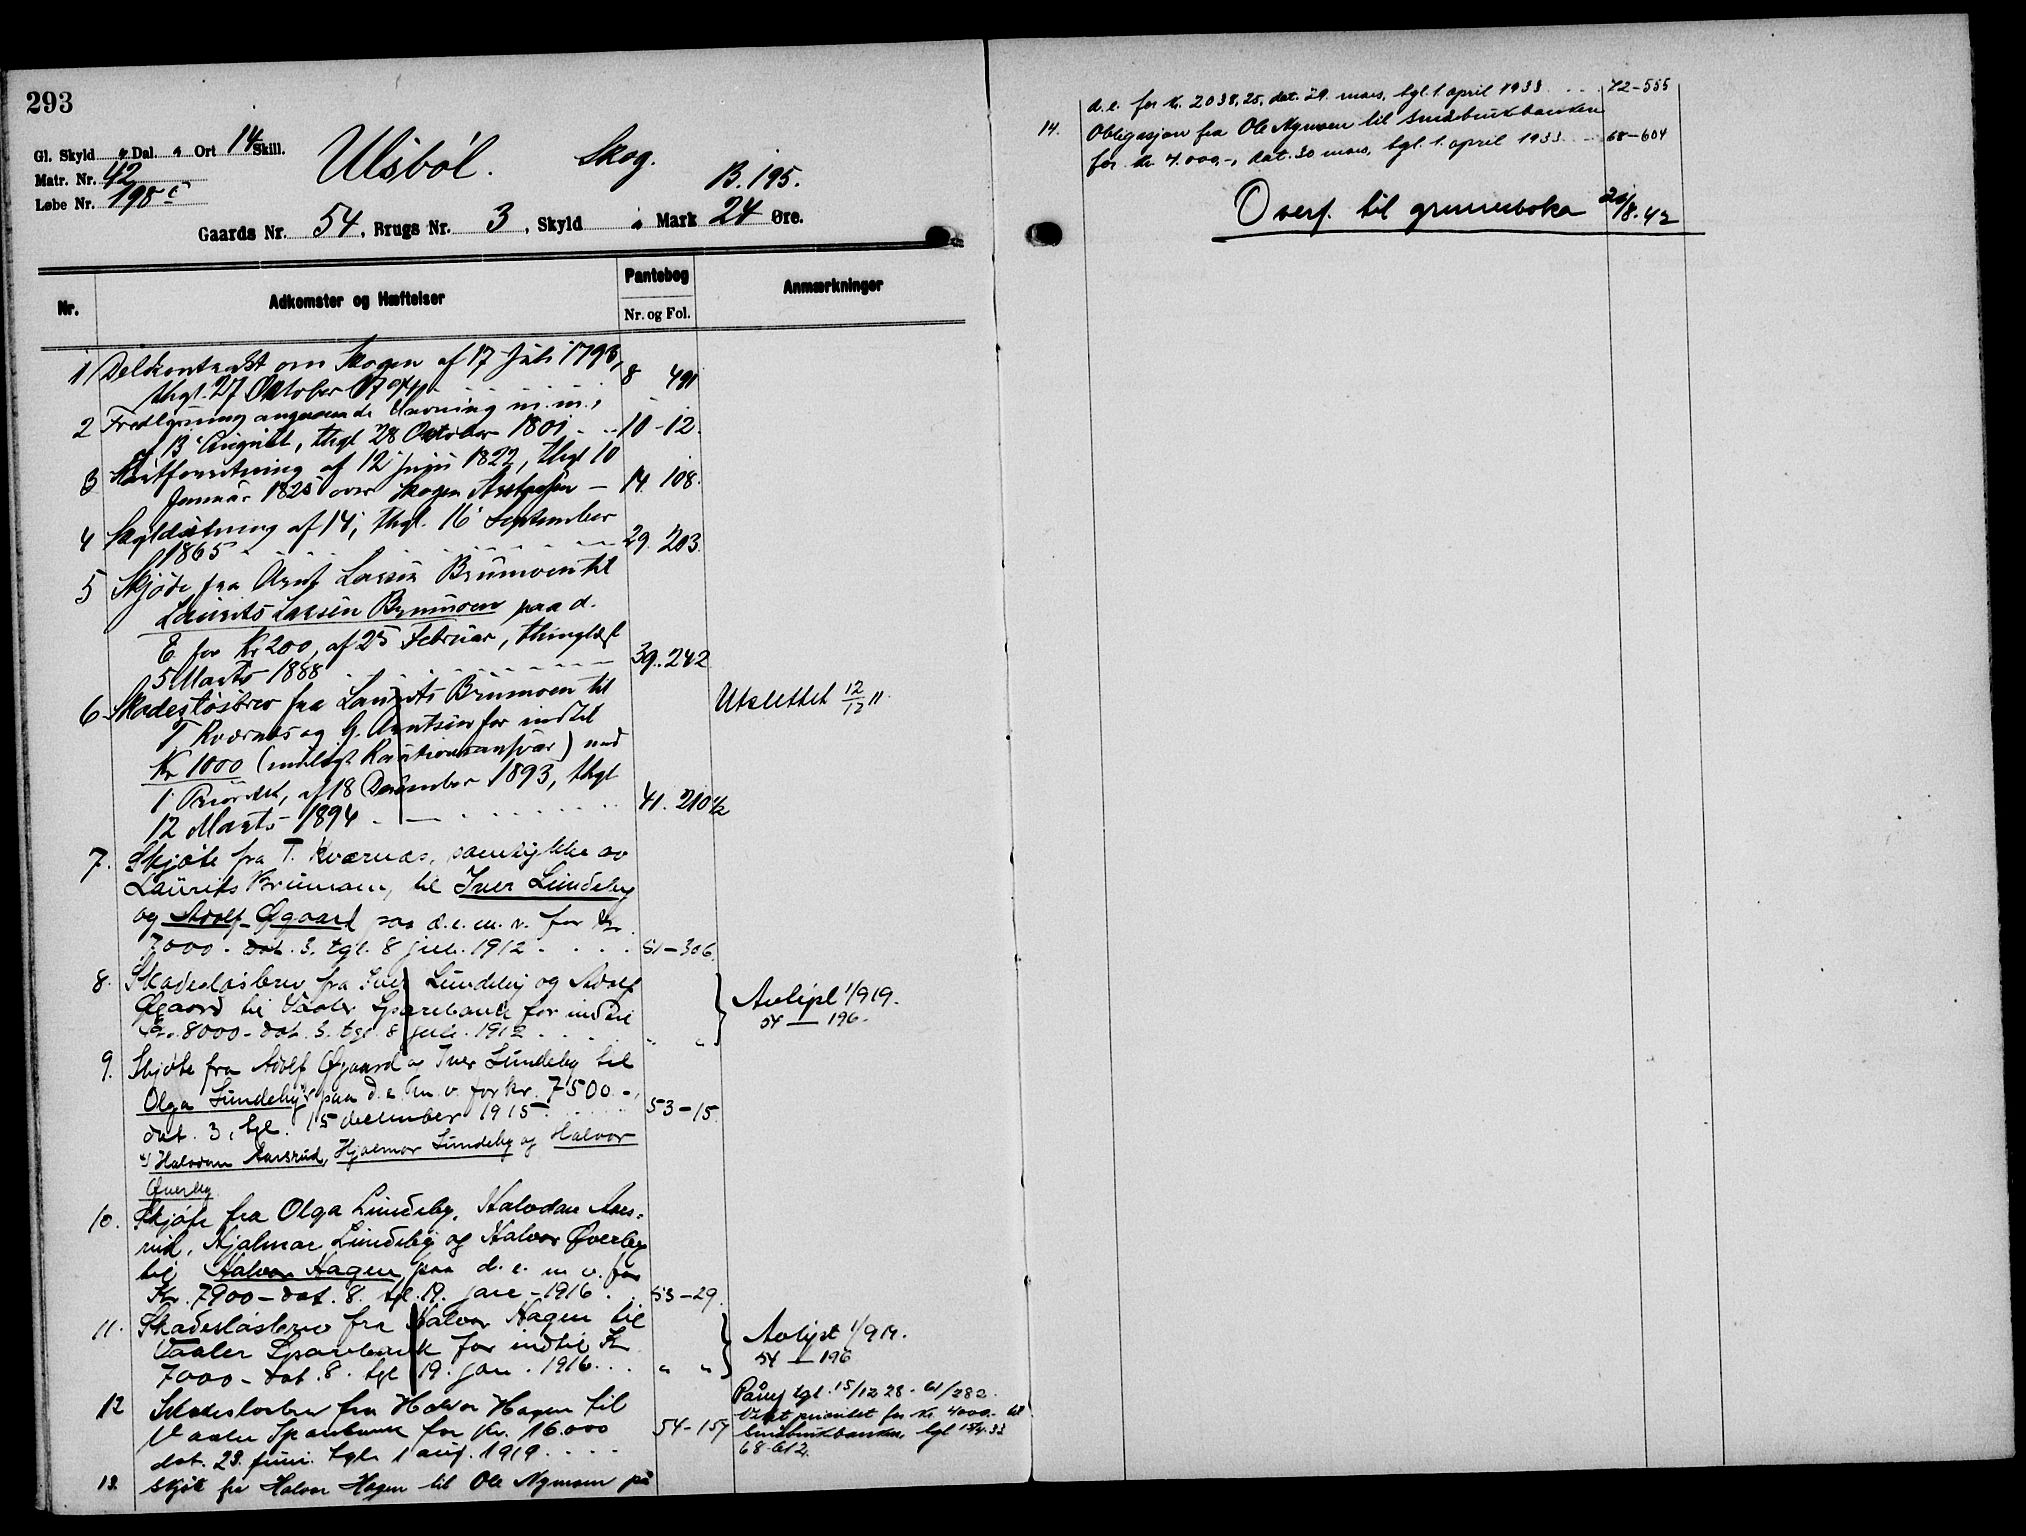 293
Gl. Skyld " Dal. " Ort 14 Skill.
Matr. Nr. 42
Løbe Nr. 198 c
Ulsbøl. Skog.
B. 195.
Gaards Nr. 54, Brugs Nr. 3, Skyld " Mark 24 Øre.
Nr. Adkomster og Hæftelser Pantebog Anmærkninger
Nr. og Fol.
1 Delkontrakt om Skogen af 17 Juli 1798,
thgl. 27 Oktober 8 491
2 Fredlysning angaaende Havning m.m.,
thgl 28 Oktober 1801 10-12.
3 af 12 Juni 1822, thgl 10
Januar 1825 over Skogen 14. 108.
4 Skyldsætning af 14, thgl. 16 September
1865 29. 203.
5 Skjøde fra Larsen Brumoen til
Laurits Larsen Brumoen paa d.
E. for Kr 200, af 25 Februar, thinglæst
5 Marts 1888 39. 242
6 Skadesløsbrev fra Laurits Brumoen til
T Kværnæs og G. Arntsen for indtil
Kr 1000 (muligt Kautionsansvar) med
1. Prioritet, af 18 December 1893, thgl
12 Marts 1894 41. 210 1/2
Utslettet 12/12 11.
7. Skjøte fra T. Kværnæs, samtykke av
Laurits Brumoen, til Iver Lundeby
og Adolf Øgaard paa d.e.m.v. for Kr.
7000 - dat. 3. tgl. 8 juli 1912 51-306.
8. Skadesløsbrev fra Iver Lundeby og Adolf
Øgaard til Vaaler Sparebank for indtil
Kr. 8000 - dat. 3. tgl. 8 juli. 1912 " "
Avlyst 1/9 19.
54 — 196.
9. Skjøte fra Adolf Øgaard og Iver Lundeby til
Olga Lundeby x) paa d.e.m.v. for kr. 7500.-,
dat. 3, tgl. 15 december 1915 53-15.
x) Halvdan Aarsrud, Hjalmar Lundeby og Halvor
Øverby
10. Skjøte fra Olga Lundeby, Halvdan Aars-
rud, Hjalmar Lundeby og Halvor Øverby
til Halvor Hagen paa d. e. m v. for
Kr. 7900 - dat. 8. tgl. 19. jan - 1916. 53-29.
11. Skadesløsbrev fra Halvor Hagen til
Vaaler Sparebank for indtil Kr
7000 - dat. 8. tgl 19. jan. 1916. " "
Avlyst 1/9 19.
54 — 196
12 Skadesløsbrev fra Halvor Hagen til
Vaaler Sparebank for Kr. 16.000
dat. 23. juni. tgl. 1 aug. 1919 54-157
tgl. 15/12 28 - 61/282.
Veket prioritet for kr. 4000.- til
Småbrukbanken, tgl 33
68-612.
13. Skjøte fra Halvor Hagen til Ole Nymoen på
d.e. for kr. 2038,25, dat. 29. mars, tgl. 1. april 1933 72-555
14. Obligasjon fra Ole Nymoen til Småbrukbanken
for kr. 4.000,-, dat. 30 mars, tgl. 1. april 1933 68-604
Overf. til grunnboka 8.42